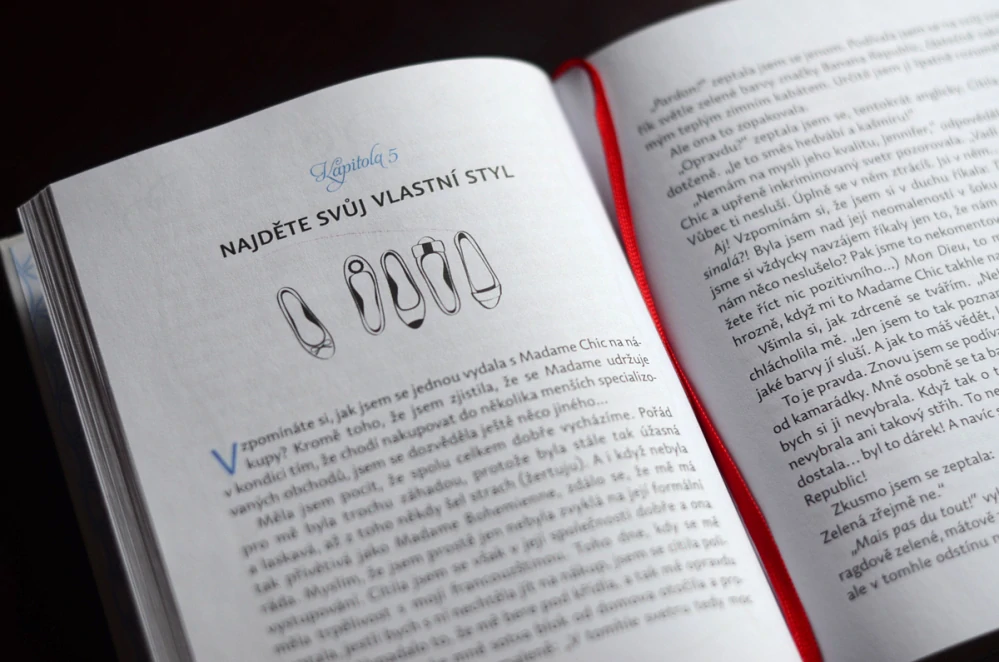 Kapitola 5
NAJDĚTE SVŮJ VLASTNÍ STYL
Vzpomínáte si, jak jsem se jednou vydala s Madame Chic na ná-
kupy? Kromě toho, že jsem zjistila, že se Madame udržuje
v kondici tím, že chodí nakupovat do několika menších specializo-
vaných obchodů, jsem se dozvěděla ještě něco jiného...
Měla jsem pocit, že spolu celkem dobře vycházíme. Pořád
pro mě byla trochu záhadou, protože byla stále tak úžasná
a laskavá, až z toho někdy šel strach (žertuju). A i když nebyla
tak přívětivá jako Madame Bohemienne, zdálo se, že mě má
ráda. Myslím, že jsem prostě jen nebyla zvyklá na její formální
vystupování. Cítila jsem se však v její společnosti dobře a ona
měla trpělivost s mojí francouzštinou. Toho dne, kdy se mě
„Pardon?“ zeptala jsem se jenom.
řík světle zelené barvy značky Banana Republic,
mým teplým zimním kabátem. Určitě jsem jí špatně
Ale ona to zopakovala.
„Opravdu?“ zeptala jsem se, tentokrát anglicky.
dotčeně. „Je to směs hedvábí a kašmíru!“
„Nemám na mysli jeho kvalitu, Jennifer,“
Chic a upřeně inkriminovaný svetr pozorovala.
Vůbec ti nesluší. Úplně se v něm ztrácíš. Jsi v něm
Aj! Vzpomínám si, že jsem si v duchu říkala:
sinalá?! Byla jsem nad její neomaleností v šoku
jsme si vždycky navzájem říkaly jen to, že nám
nám něco neslušelo? Pak jsme to nekomentova
žete říct nic pozitivního...) Mon Dieu, to
hrozné, když mi to Madame Chic takhle na
Všimla si, jak zdrceně se tvářím. „Ne
chlácholila mě. „Jen jsem to tak poznam
jaké barvy jí sluší. A jak to máš vědět,
To je pravda. Znovu jsem se podív
od kamarádky. Mně osobně se ta ba
bych si ji nevybrala. Když tak o t
nevybrala ani takový střih. To ne
dostala... byl to dárek! A navíc
Republic!
Zkusmo jsem se zeptala:
Zelená zřejmě ne.“
„Mais pas du tout!“ vy
ragdově zelené, mátově
ale v tomhle odstínu